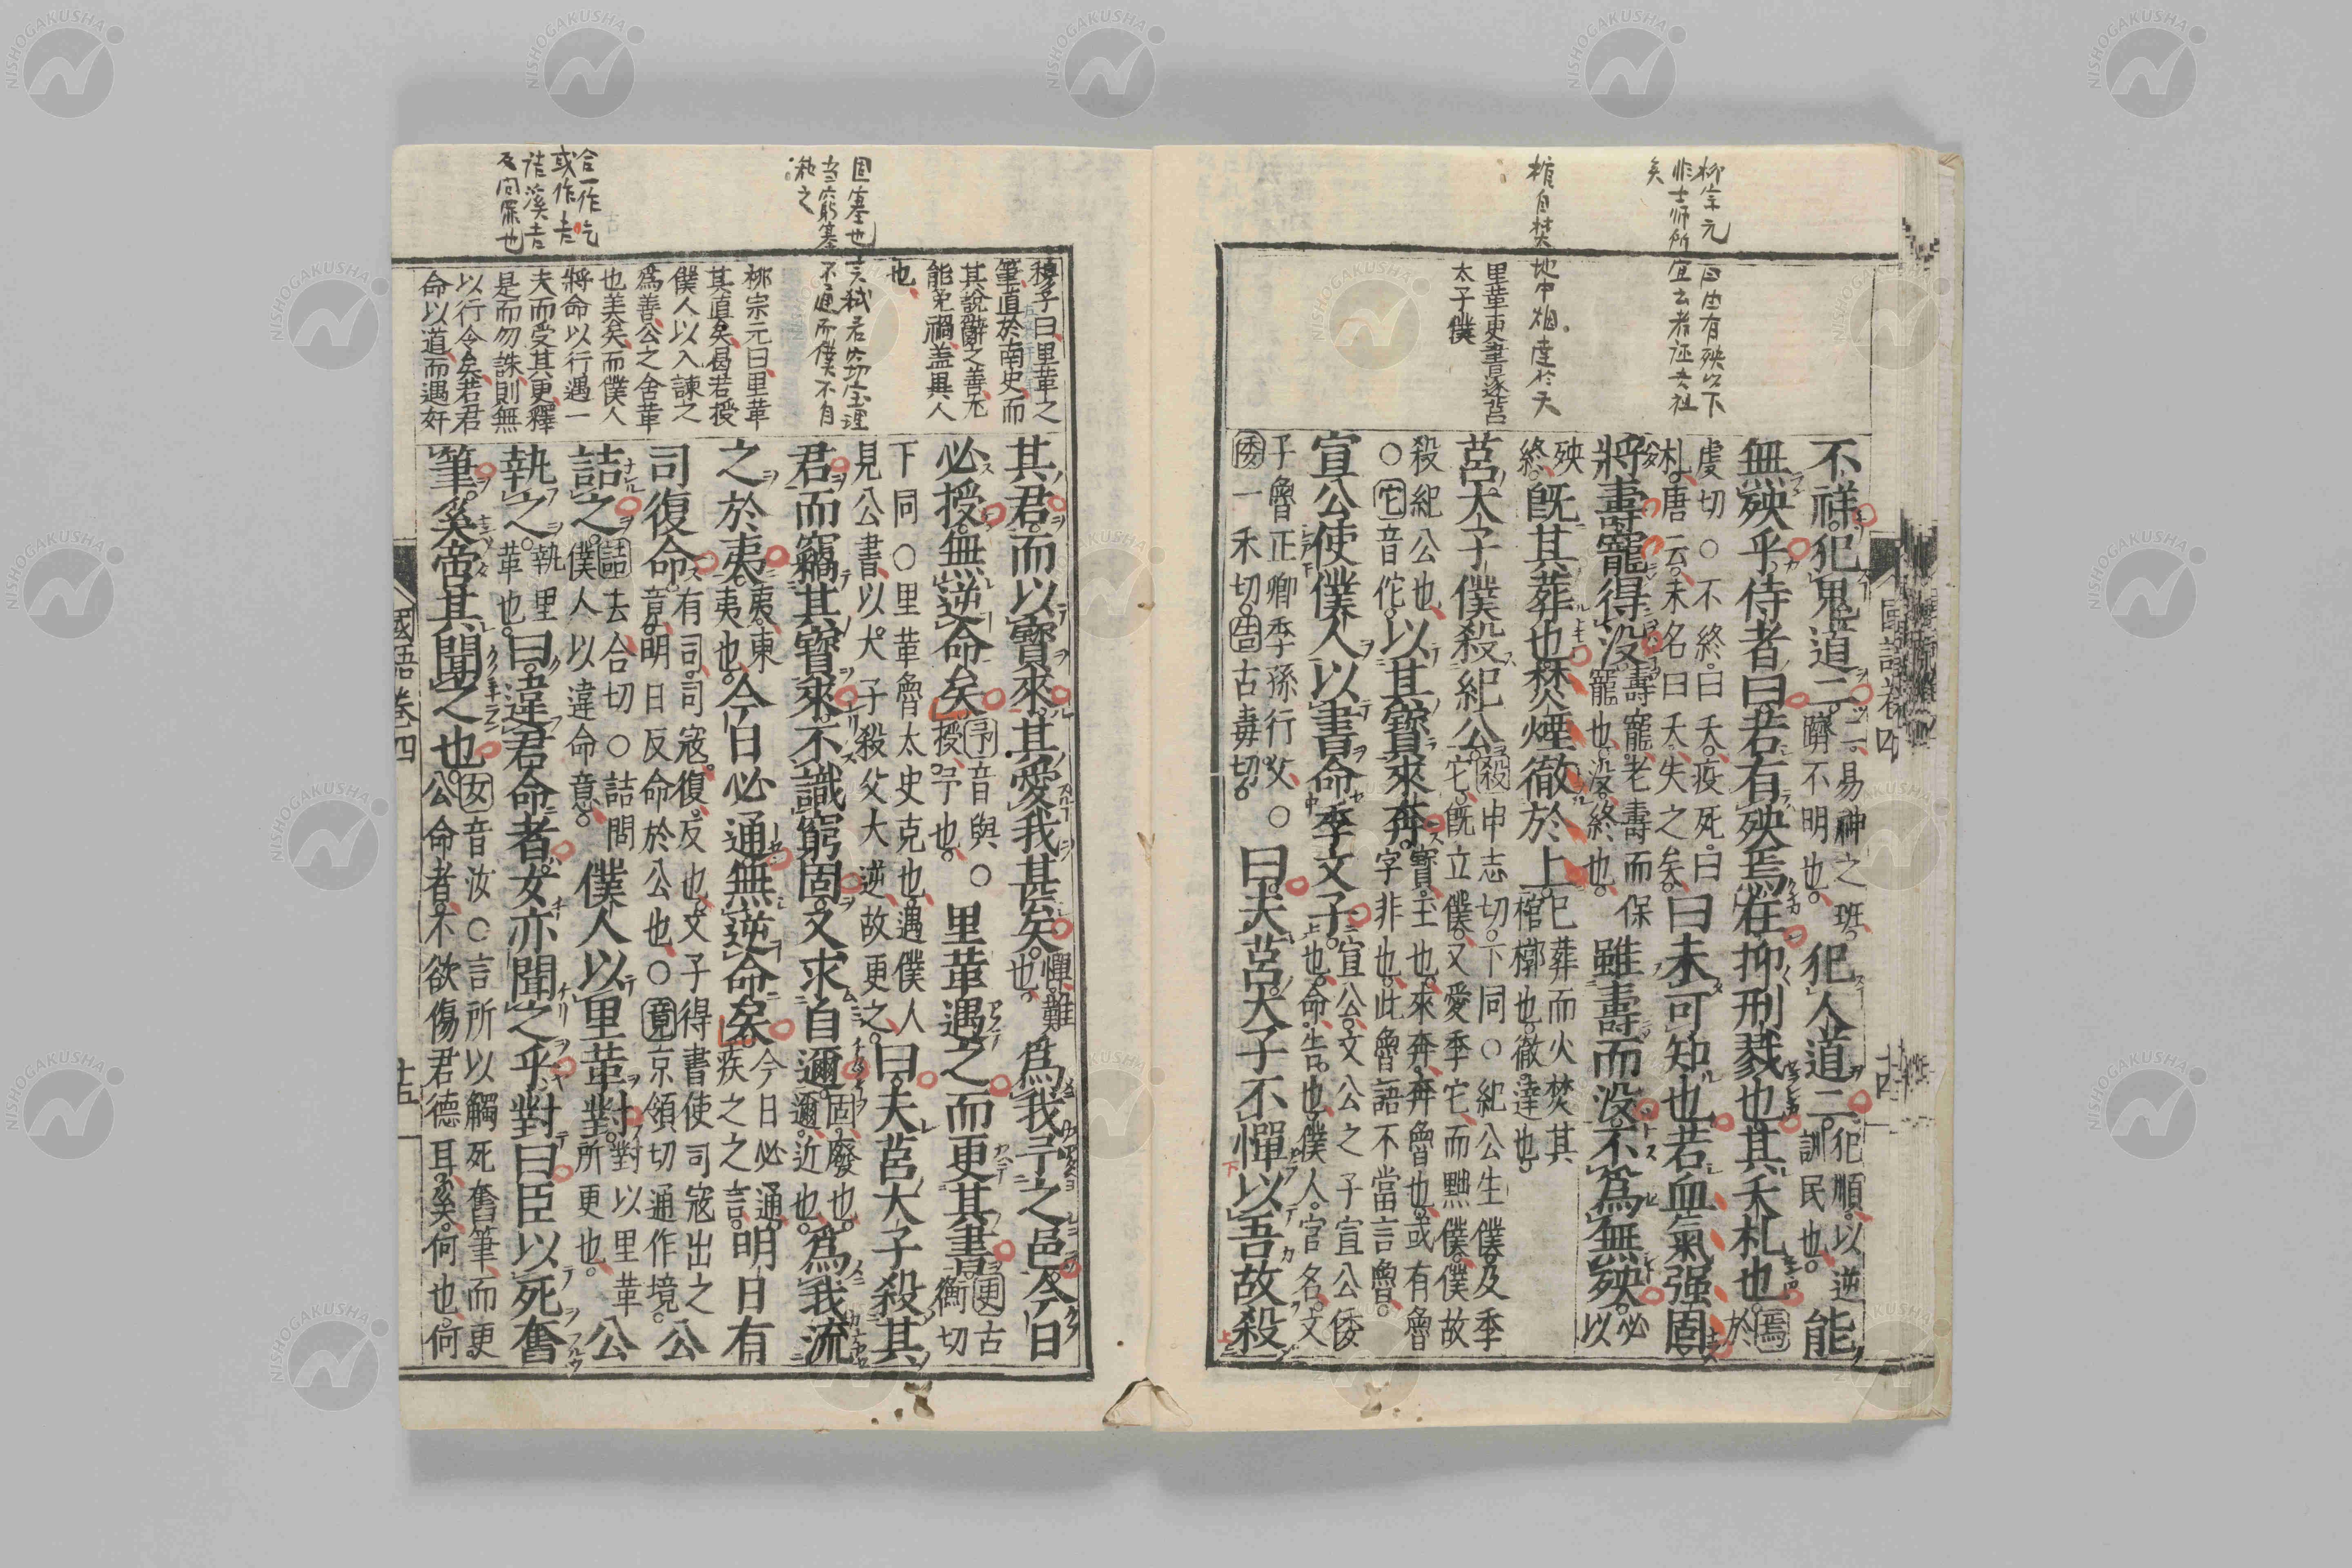 不祥。犯鬼道二。二、易神之班。躋不明也。犯人道二。犯順以逆訓民也。能
無殃乎。侍者曰。若有殃焉在。抑刑戮也。其夭札也。焉於
虔切○不終曰夭。疫死曰札。唐云未名曰夭失之矣。曰未可知也。若血氣强固。
將壽寵得沒。壽寵老壽而保寵也。沒終也。雖壽而沒。不爲無殃。必以
殃終。旣其葬也。焚煙徹於上。已葬而火焚其棺槨也。徹達也。
莒大子僕殺紀公。殺申志切。下同○紀公生僕及季它。旣立僕。又愛季它而黜僕。僕故
殺紀公也。○它音佗。以其寶來奔。寶玉也。來奔奔魯也。或有魯字非也。此魯語不當言魯。
宣公使僕人以書命季文子。宣公文公之子宣公倭也。命告也。僕人官名。文
子魯正卿季孫行父。○倭一禾切。告古毒切。曰。夫莒大子不憚以吾故殺
里革更書逐莒
太子僕
國語卷四
十四
其君。而以寶來。其愛我甚矣。憚難也。爲我予之邑。今日
必授。無逆命矣。予音與。○授予也。里革遇之而更其書。更古衡切
下同○里革魯太史克也。遇僕人見公書以大子殺父大逆。故更之。曰。夫莒大子殺其
君。而竊其寶來。不識窮固。又求自邇。固廢也。邇近也。爲我流
之於夷。夷東夷也。今日必通。無逆命矣。今日必通疾之之言。明日有
司復命。有司司寇。復反也。文子得書使司寇出之竟。明日反命於公也。○竟京領切通作境。公
詰之。詰去合切○詰問僕人以違命意。僕人以里革對。對以里革所更也。公
執之。執里革也。曰。違君命者。女亦聞之乎。對曰。臣以死奮
筆。奚啻其聞之也。女音汝○言所以觸死奮筆而更公命者。不欲傷君德耳。奚何也。何
穆子曰里革之
筆直於南史而
其說辭之善尤
能免禍盖異人
也
柳宗元曰里革
其直矣曷若授
僕人以入諫之
爲善公之舍革
也美矣而僕人
將命以行遇一
夫而受其更釋
是而勿誅則無
以行令矣若君
命以道而遇奸
國語卷四
十五